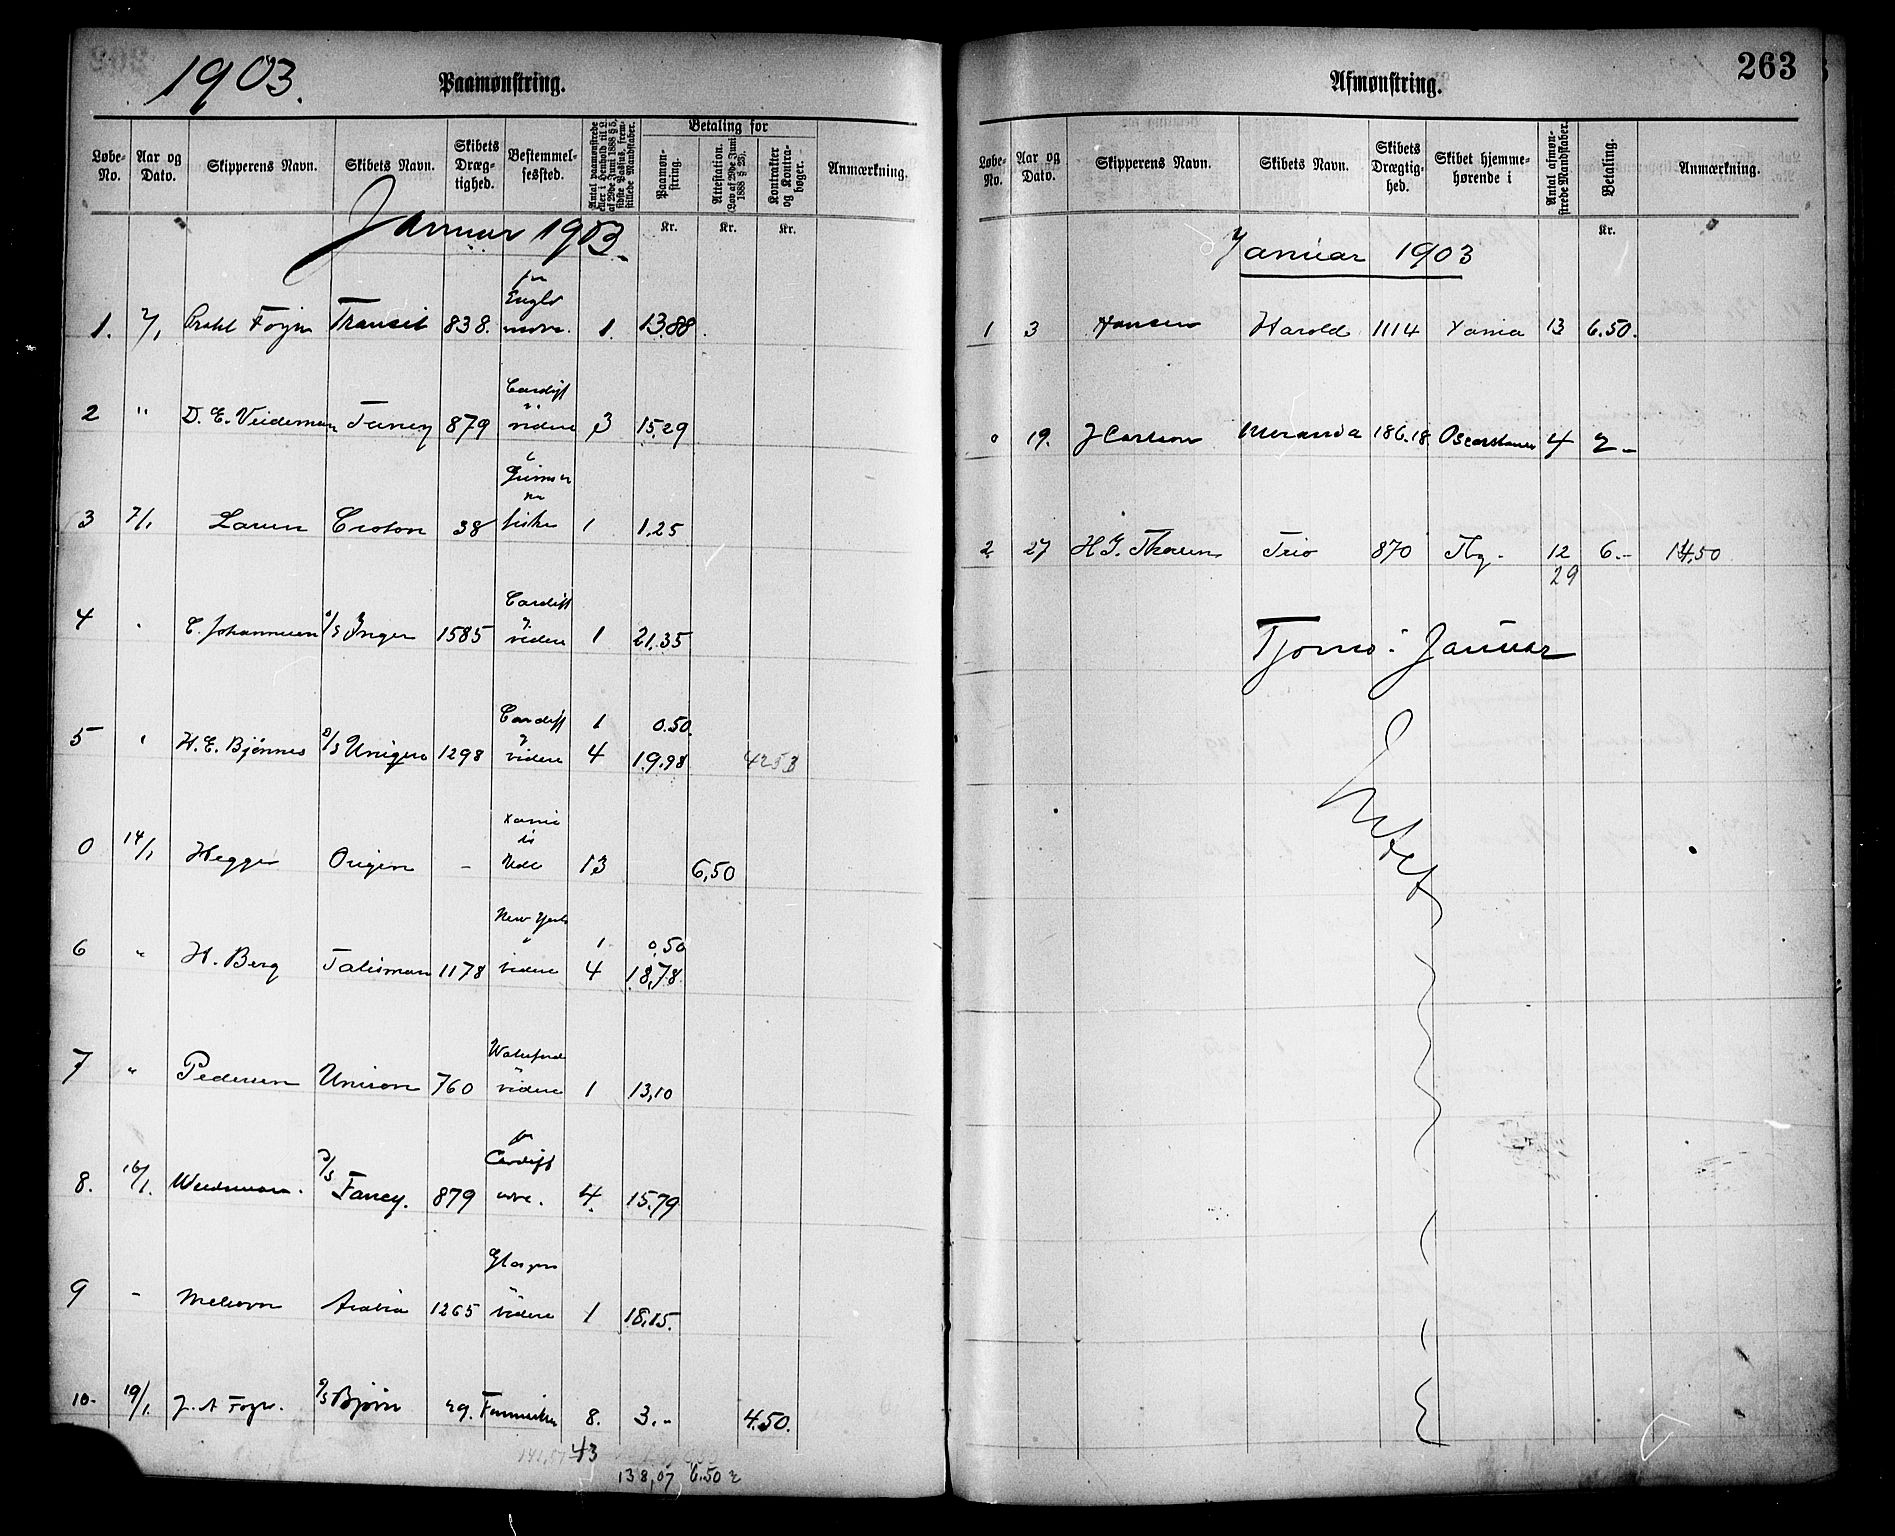 1903.
Paamønstring.
Løbe-No. Aar og Dato. Skipperens Navn. Skibets Navn. Skibets Dræg-tighed. Bestemmel-sessted. Antal paamønstrede eller i Henhold til L. af 29de Juni 1888 § 5, sidste Passus, frem-stillede Mandskaber. Betaling for Paamøn-string. Attestation. (Lov af 29de Juni 1888 § 25). Kontrakter og Kontra-bøger. Anmærkning.
Kr. Kr. Kr.
Januar 1903.
1. 2/1 Foyn Transit 838. 1. 13.88
2 " D. E. Fancy 879 Cardiff videre 3 15,29
3 7/1 Croton 38 1 1,25
4 C. Johannessen Inger 1585 Cardiff videre 1 21,35
5 H. E. Bjønnes 1298 Cardiff videre 1 0.50
4 19,98 4253
0 14/1 Origen - 13 6,50
6 " H. Berg Talisman 1178 New York videre 1 0,50
4 18,78
7 " Pedersen Union 760 videre 1 13,10
8. 16/1. Fancy. 879 Cardiff 4. 15.79
9 - Arabia 1265 videre 1 18,15.
10. 19/1. J. A Foyn. Bjørn 29. 8. 3.- 4.50.
43
138,07 6.50
263
Afmønstring.
Løbe-No. Aar og Dato. Skipperens Navn. Skibets Navn. Skibets Drægtig-hed. Skibet hjemme-hørende i Antal afmøn-strede Mandskaber. Betaling. Anmærkning.
Kr.
Januar 1903
1 3 Hansen Harold 1114 Xania 13 6.50.
0 19. J Carlson Meranda 186.18 4 2-
2 27 H G. Trio 870 Tbg. 12 6.- 14,50
29
Tjømø. Januar
Intet